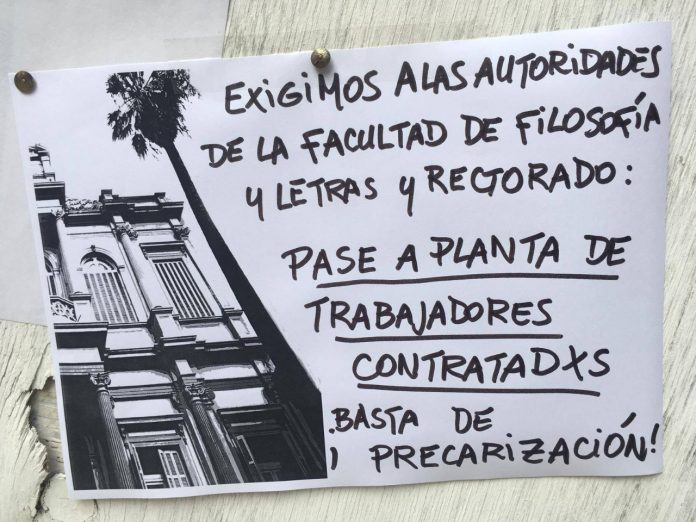 EXIGIMOS A LAS AUTORIDADES
DE LA FACULTAD DE FILOSOFÍA
Y LETRAS Y RECTORADO:
PASE A PLANTA DE
TRABAJADORES
CONTRATADXS
BASTA DE
PRECARIZACIÓN!